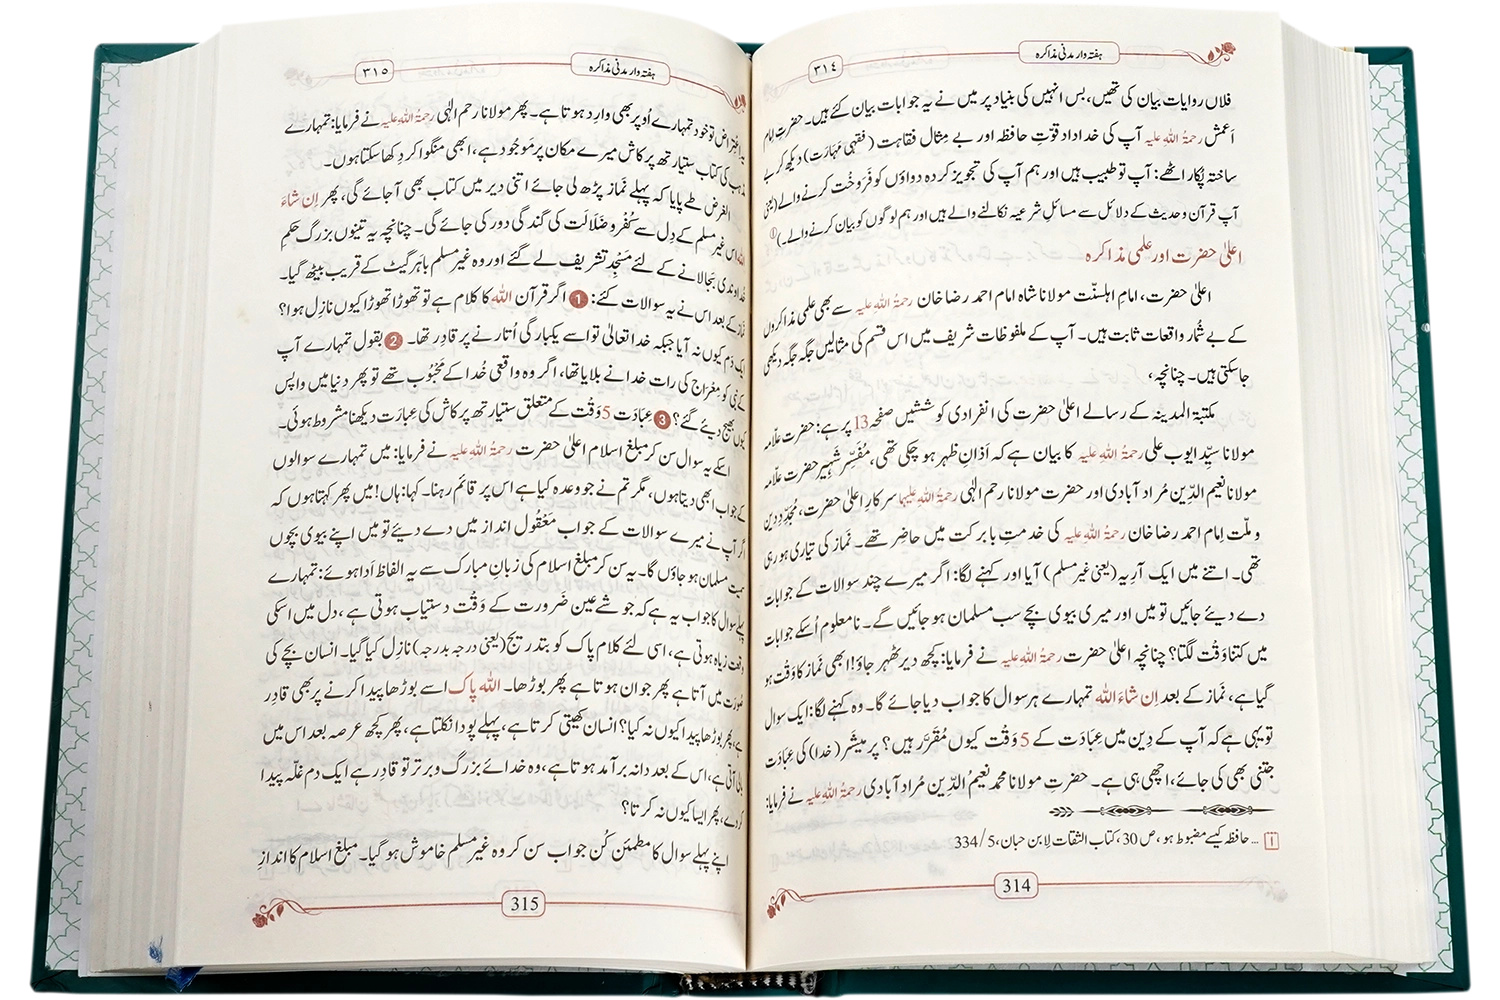 ہفتہ وار مدنی مذاکرہ
٣١٤
فلاں روایات بیان کی تھیں، بس انہیں کی بنیاد پر میں نے یہ جوابات بیان کئے ہیں۔ حضرتِ امام
اَعمش رحمۃُ اللہِ علیہ آپ کی خداداد قوّتِ حافظہ اور بے مِثال فقاہت (فقہی مَہارَت) دیکھ کر بے
ساختہ پُکار اٹھے: آپ تو طبیب ہیں اور ہم آپ کی تجویز کردہ دواؤں کو فَروخْت کرنے والے (یعنی
آپ قرآن و حدیث کے دلائل سے مسائلِ شرعیہ نکالنے والے ہیں اور ہم لوگوں کو بیان کرنے والے۔)
اعلیٰ حضرت اور علمی مذاکرہ
اعلیٰ حضرت، امامِ اہلسنّت مولانا شاہ امام احمد رضا خان رحمۃُ اللہِ علیہ سے بھی علمی مذاکروں
کے بے شُمار واقعات ثابت ہیں۔ آپ کے ملفوظات شریف میں اس قسم کی مثالیں جگہ جگہ دیکھی
جاسکتی ہیں۔ چنانچہ،
مکتبۃ المدینہ کے رسالے اعلیٰ حضرت کی انفرادی کوششیں صفحہ 13 پر ہے: حضرت علّامہ
مولانا سیِّد ایوب علی رحمۃُ اللہِ علیہ کا بیان ہے کہ اَذانِ ظہر ہو چکی تھی، مُفَسِّرِ شَہِیر حضرت علّامہ
مولانا نعیم الدّین مُراد آبادی اور حضرت مولانا رحم الٰہی رحمۃُ اللہِ علیہما سرکارِ اعلیٰ حضرت، مُجَدِّدِ دین
و ملّت اِمام احمد رضا خان رحمۃُ اللہِ علیہ کی خدمتِ بابرکت میں حاضِر تھے۔ نَماز کی تیاری ہو رہی
تھی۔ اتنے میں ایک آرِیہ (یعنی غیر مسلم) آیا اور کہنے لگا: اگر میرے چند سوالات کے جوابات
دے دیئے جائیں تو میں اور میری بیوی بچّے سب مسلمان ہو جائیں گے۔ نامعلوم اُسکے جوابات
میں کتنا وَقْت لگتا؟ چنانچہ اعلیٰ حضرت رحمۃُ اللہِ علیہ نے فرمایا: کچھ دیر ٹھہر جاؤ! ابھی نَماز کا وَقْت ہو
گیا ہے، نَماز کے بعد اِن شاءَ اللہ تمہارے ہر سوال کا جواب دیا جائے گا۔ وہ کہنے لگا: ایک سوال
تو یہی ہے کہ آپ کے دِین میں عِبادَت کے 5 وَقْت کیوں مُقَرَّر ہیں؟ پَر مِیشَر (خدا) کی عِبادَت
جتنی بھی کی جائے، اچھی ہی ہے۔ حضرتِ مولانا محمد نعیمُ الدّین مُراد آبادی رحمۃُ اللہِ علیہ نے فرمایا:
١ ... حافظہ کیسے مضبوط ہو، ص 30، کتاب الثقات لابن حبان، 5/334
314
ہفتہ وار مدنی مذاکرہ
٣١٥
یہ اِعْتِراض تو خود تمہارے اُوپر بھی وارِد ہوتا ہے۔ پھر مولانا رحم الٰہی رحمۃُ اللہِ علیہ نے فرمایا: تمہارے
مذہب کی کتاب ستیارتھ پرکاش میرے مکان پر مَوجُود ہے، ابھی منگوا کر دِکھا سکتا ہوں۔
الغَرض طے پایا کہ پہلے نَماز پڑھ لی جائے اتنی دیر میں کتاب بھی آجائے گی، پھر اِن شاءَ
اللہ اس غیر مسلم کے دِل سے کُفْر و ضَلَالَت کی گندگی دور کی جائے گی۔ چنانچہ یہ تینوں بزرگ حکمِ
خُداوندی بجالانے کے لئے مَسْجِد تشریف لے گئے اور وہ غیر مسلم باہَر گیٹ کے قریب بیٹھ گیا۔
نَماز کے بعد اس نے یہ سوالات کئے: 1 اگر قرآن اللہ کا کلام ہے تو تھوڑا تھوڑا کیوں نازِل ہوا؟
ایک دَم کیوں نہ آیا جبکہ خدا تعالیٰ تو اسے یکبارگی اُتارنے پر قادِر تھا۔ 2 بقول تمہارے آپ
کے نبی کو مِعْراج کی رات خدا نے بلایا تھا، اگر وہ واقعی خُدا کے مَحْبُوب تھے تو پھر دنیا میں واپس
کیوں بھیج دیئے گئے؟ 3 عِبادَت 5 وَقْت کے متعلق ستیارتھ پرکاش کی عِبارَت دیکھنا مشروط ہوئی۔
اسکے یہ سوال سن کر مبلغِ اسلام اعلیٰ حضرت رحمۃُ اللہِ علیہ نے فرمایا: میں تمہارے سوالوں
کے جواب ابھی دیتا ہوں، مگر تم نے جو وعدہ کیا ہے اس پر قائم رہنا۔ کہا: ہاں! میں پھر کہتا ہوں کہ
اگر آپ نے میرے سوالات کے جواب مَعْقُول انداز میں دے دیئے تو میں اپنے بیوی بچّوں
سمیت مسلمان ہو جاؤں گا۔ یہ سن کر مبلغِ اسلام کی زبانِ مبارک سے یہ الفاظ اَدا ہوئے: تمہارے
پہلے سوال کا جواب یہ ہے کہ جو شے عین ضَرورت کے وَقْت دستیاب ہوتی ہے، دل میں اسکی
وقعت زیادہ ہوتی ہے، اسی لئے کلامِ پاک کو بتدریج (یعنی درجہ بدرجہ) نازِل کیا گیا۔ انسان بچے کی
صُورَت میں آتا ہے پھر جوان ہوتا ہے پھر بوڑھا۔ اللہ پاک اسے بوڑھا پیدا کرنے پر بھی قادِر
ہے، پھر بوڑھا پیدا کیوں نہ کیا؟ انسان کھیتی کرتا ہے، پہلے پودا نکلتا ہے، پھر کچھ عرصہ بعد اس میں
بالی آتی ہے، اس کے بعد دانہ برآمد ہوتا ہے، وہ خدائے بزرگ و برتر تو قادِر ہے ایک دم غلّہ پیدا
کر دے، پھر ایسا کیوں نہ کرتا؟
اپنے پہلے سوال کا مطمئن کُن جواب سن کر وہ غیر مسلم خاموش ہو گیا۔ مبلغِ اسلام کا اندازِ
315